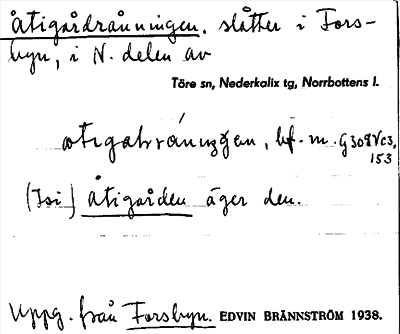 Åtigårdrånningen. slåtter i Fors-
byn, i N. delen av
Töre sn, Nederkalix tg, Norrbottens l.
bf. m. G309Vc3,
153
(Isi) Åtigården äger den.
Uppg. från Forsbyn. EDVIN BRÄNNSTRÖM 1938.